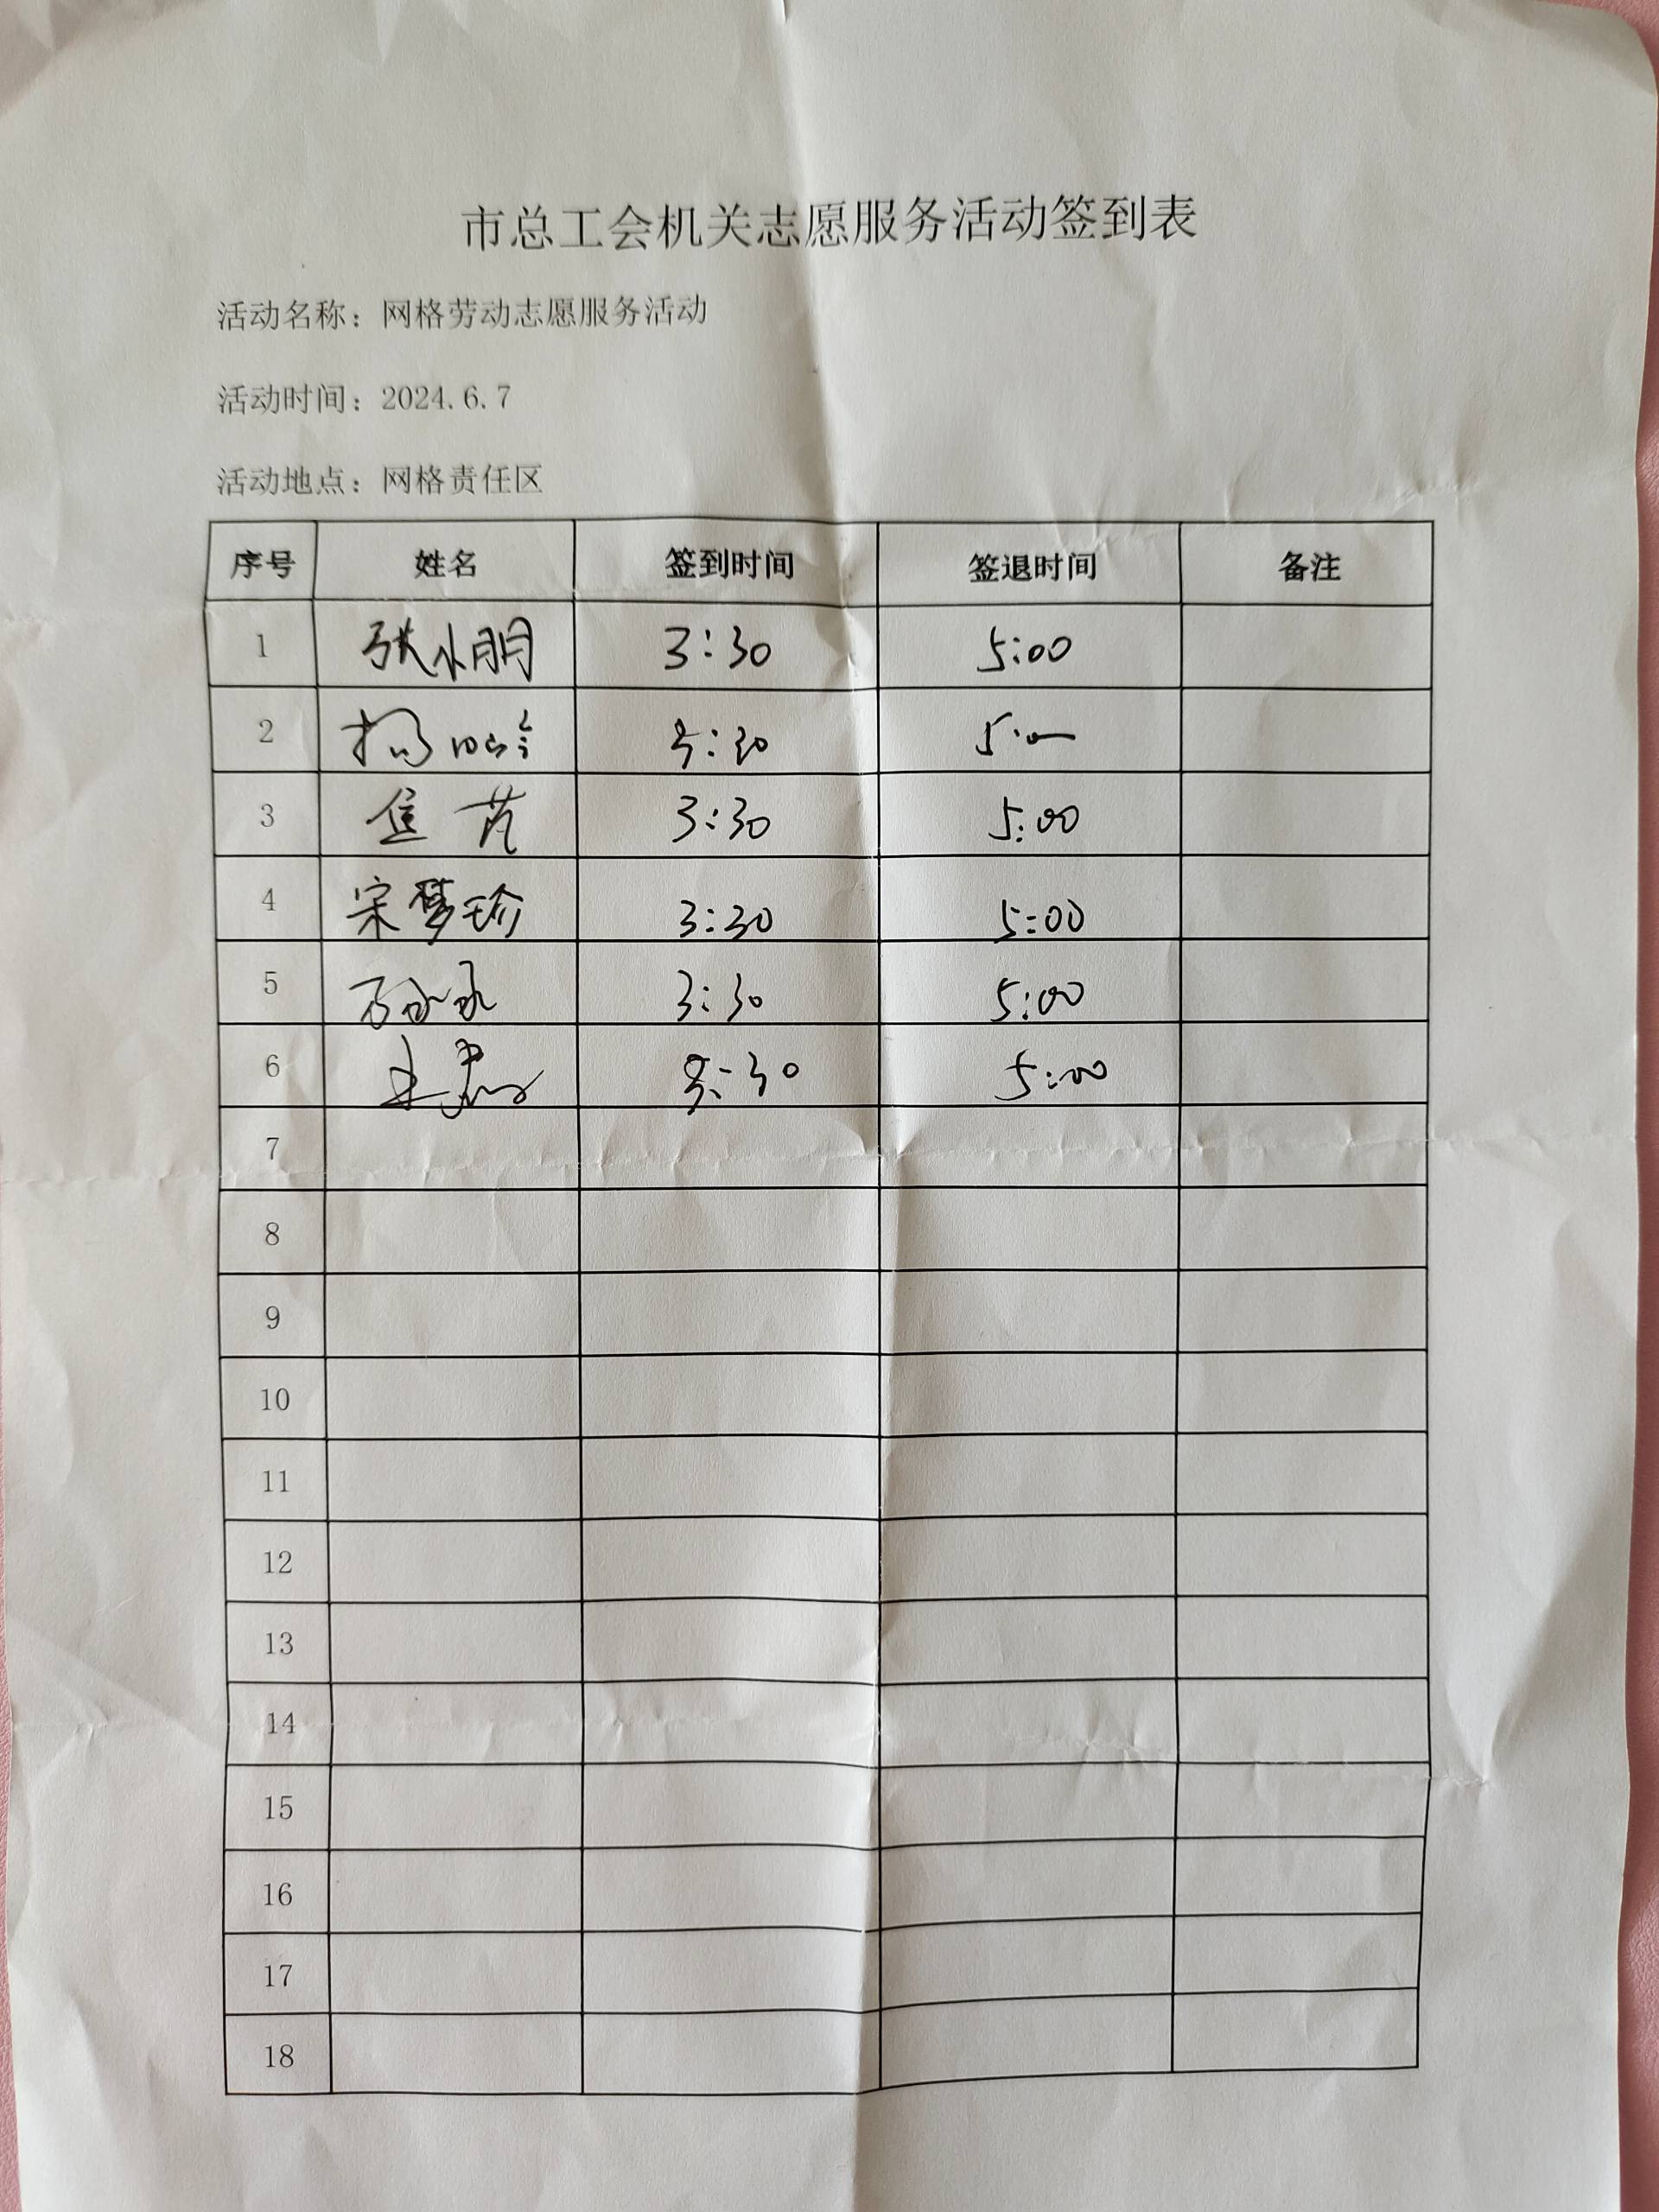 市总工会机关志愿服务活动签到表
活动名称：网格劳动志愿服务活动
活动时间：2024.6.7
活动地点：网格责任区
序号 姓名 签到时间 签退时间 备注
1 张小朋 3:30 5:00
2 杨 3:30 5:00
3 焦芃 3:30 5:00
4 宋梦珍 3:30 5:00
5 3:30 5:00
6 3:30 5:00
7
8
9
10
11
12
13
14
15
16
17
18